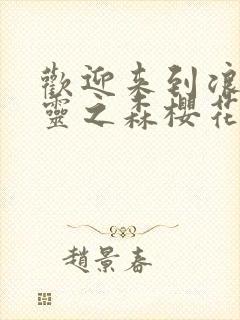 歡迎来到浪
靈之森櫻花
趙景春